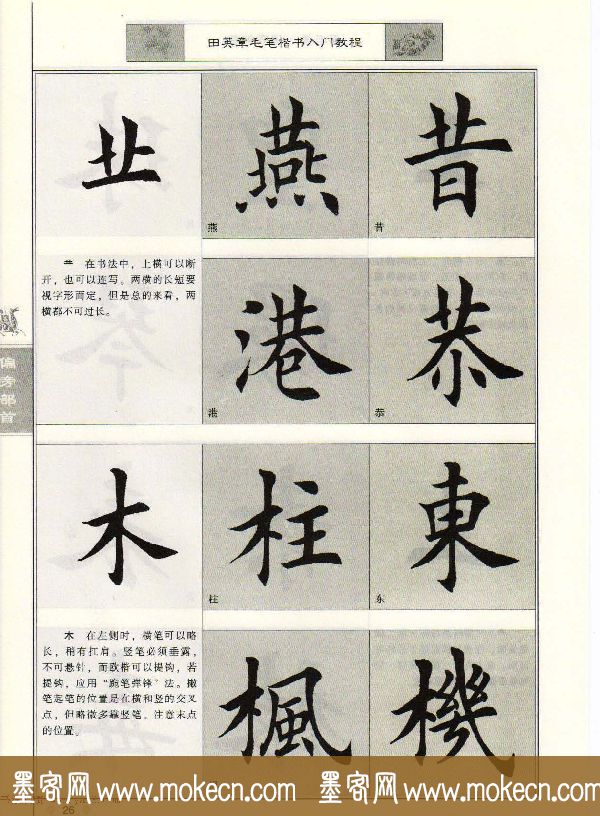 田英章毛笔楷书入门教程
龷
燕
昔
燕
昔
龷 在书法中，上横可以断
开，也可以连写。两横的长短要
视字形而定，但是总的来看，两
横都不可过长。
港
恭
港
恭
偏旁部首
木
柱
東
柱
东
木 在左侧时，横笔可以略
长，稍有扛肩。竖笔必须垂露，
不可悬针，而欧楷可以提钩，若
提钩，应用“跪笔弹锋”法。撇
笔起笔的位置是在横和竖的交叉
点，但略微多靠竖笔。注意末点
的位置。
楓
機
墨客网 www.mokecn.com 墨客网 www.mokecn.com
26